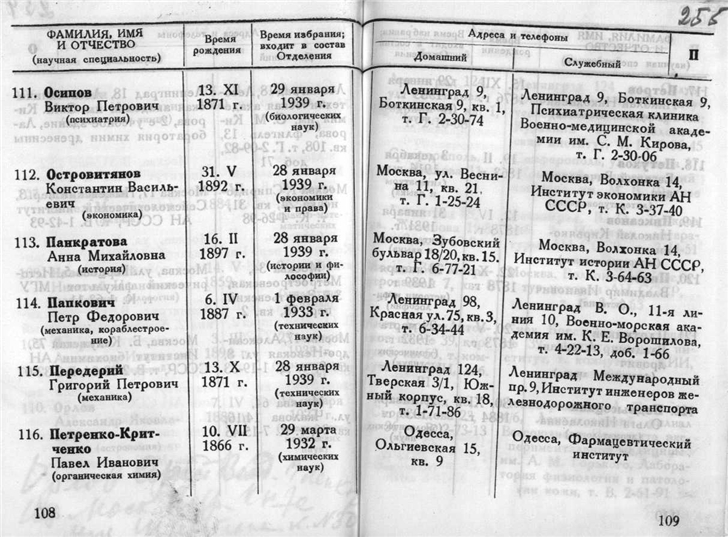 255
ФАМИЛИЯ, ИМЯ
И ОТЧЕСТВО
(научная специальность)
Время
рождения
Время избрания;
входит в состав
Отделения
111. Осипов
Виктор Петрович
(психиатрия)
13. XI
1871 г.
29 января
1939 г.
(биологических
наук)
112. Островитянов
Константин Василь-
евич
(экономика)
31. V
1892 г.
28 января
1939 г.
(экономики
и права)
113. Панкратова
Анна Михайловна
(история)
16. II
1897 г.
28 января
1939 г.
(истории и фи-
лософии)
114. Папкович
Петр Федорович
(механика, кораблестрое-
ние)
6. IV
1887 г.
1 февраля
1933 г.
(технических
наук)
115. Передерий
Григорий Петрович
(механика)
13. X
1871 г.
28 января
1939 г.
(технических
наук)
116. Петренко-Крит-
ченко
Павел Иванович
(органическая химия)
10. VII
1866 г.
29 марта
1932 г.
(химических
наук)
108
Адреса и телефоны
П
Домашний
Служебный
Ленинград 9,
Боткинская 9, кв. 1,
т. Г. 2-30-74
Ленинград 9, Боткинская 9,
Психиатрическая клиника
Военно-медицинской акаде-
мии им. С. М. Кирова,
т. Г. 2-30-06
Москва, ул. Весни-
на 11, кв. 21.
т. Г. 1-25-24
Москва, Волхонка 14,
Институт экономики АН
СССР, т. К. 3-37-40
Москва, Зубовский
бульвар 18/20, кв. 15.
т. Г. 6-77-21
Москва, Волхонка 14,
Институт истории АН СССР,
т. К. 3-64-63
Ленинград 98,
Красная ул. 75, кв. 3,
т. 6-34-44
Ленинград В. О., 11-я ли-
ния 10, Военно-морская ака-
демия им. К. Е. Ворошилова,
т. 4-22-13, доб. 1-66
Ленинград 124,
Тверская 3/1, Юж-
ный корпус, кв. 18,
т. 1-71-86
Ленинград Международный
пр. 9, Институт инженеров же-
лезнодорожного транспорта
Одесса,
Ольгиевская 15,
кв. 9
Одесса, Фармацевтический
институт
109